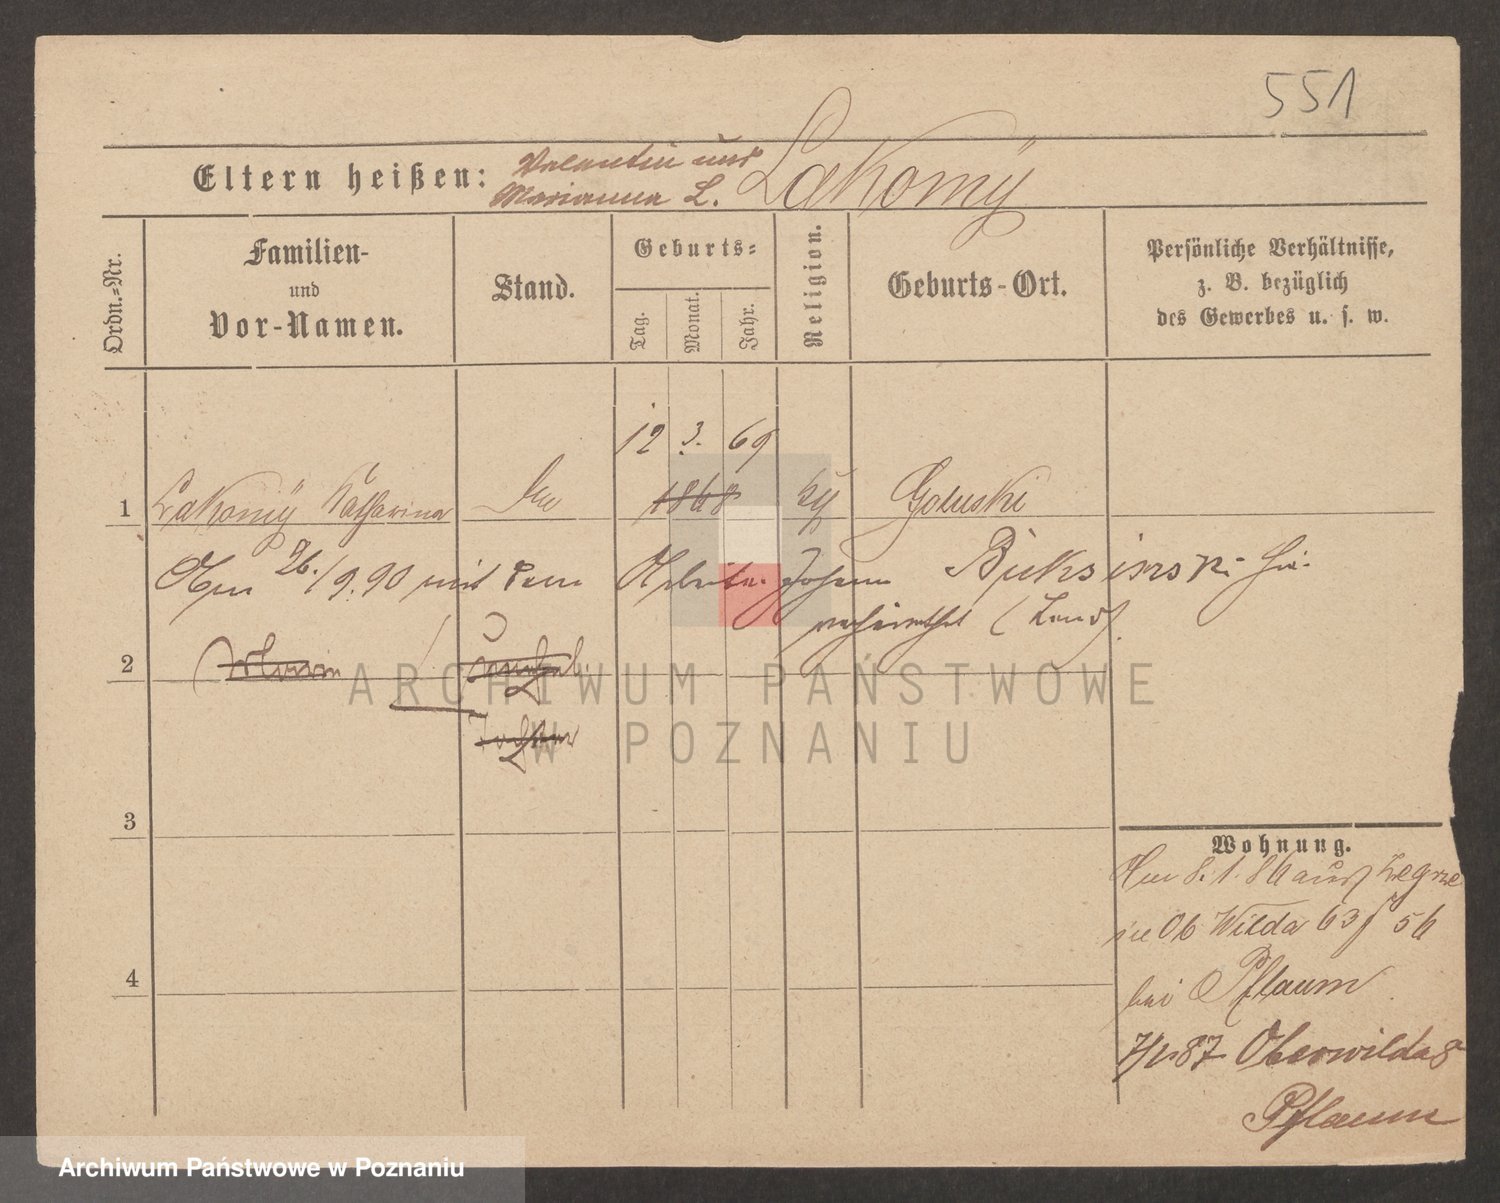 551
Eltern heißen: Valentin und
Marianna L. Lakomÿ
Ordn.-Nr.
Familien-
und
Vor-Namen.
Stand.
Geburts-
Tag.
Monat.
Jahr.
Religion.
Geburts-Ort.
Persönliche Verhältnisse,
z. B. bezüglich
des Gewerbes u. s. w.
12 3. 69
1 Lakomÿ Katharina 1868 Goluski
Am 26./9.90 mit dem Arbeiter Johann Buksinski hier
verheirathet (Land)
2
3
4
Wohnung.
Am 8.1.86 aus Zegrze
in Ob Wilda 63/56
bei Pflaum
87 Oberwilda 8
Pflaum
ARCHIWUM PAŃSTWOWE
W POZNANIU
Archiwum Państwowe w Poznaniu